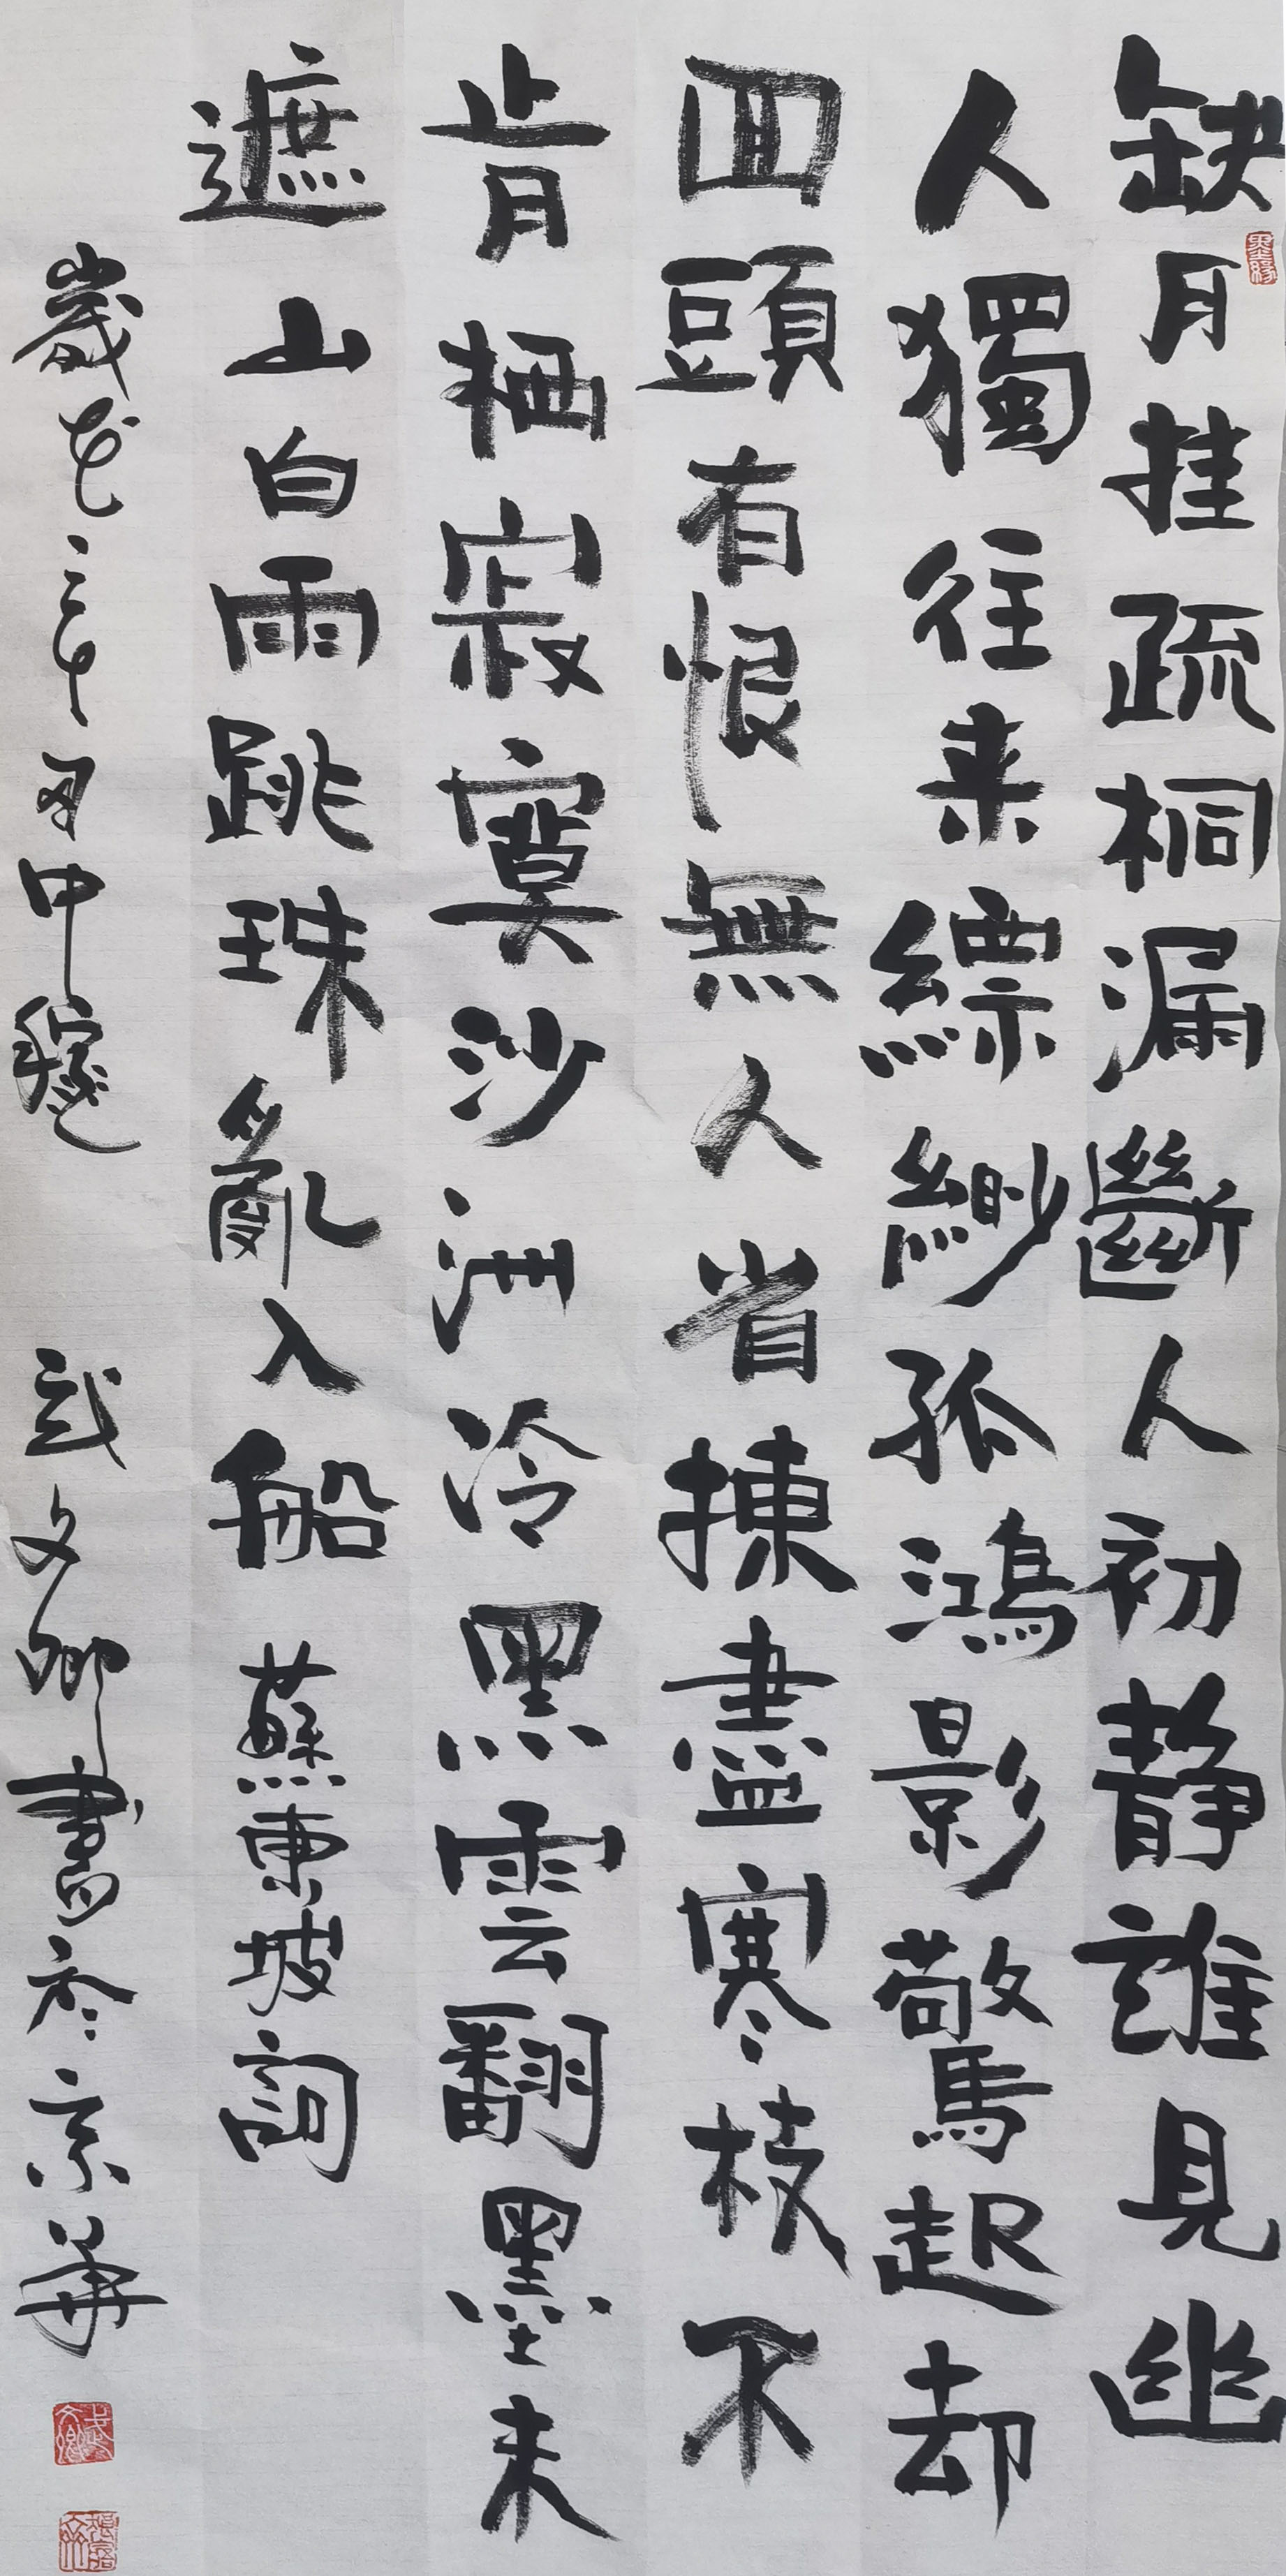 缺月挂疏桐漏斷人初静誰見幽
人獨往来縹緲孤鴻影驚起却
回頭有恨無人省揀盡寒枝不
肯栖寂寞沙洲冷黑雲翻墨未
遮山白雨跳珠亂入船 蘇東坡詞
歲在 月中 武文卿書於京華
墨緣